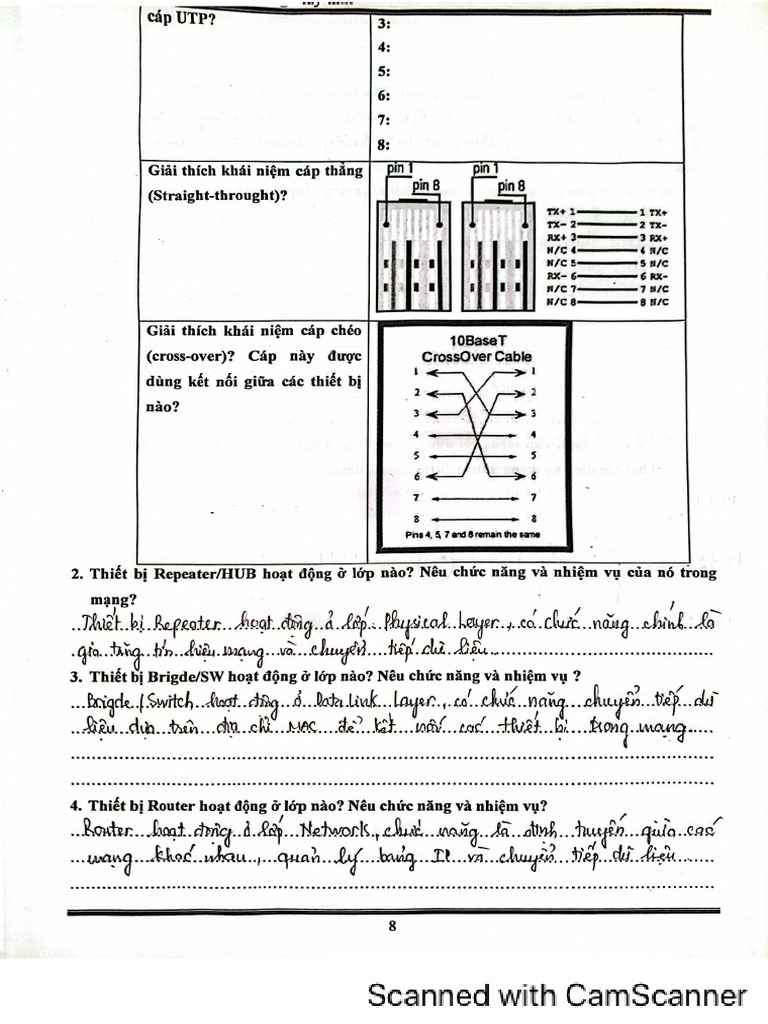 cáp UTP?
3:
4:
5:
6:
7:
8:
Giải thích khái niệm cáp thẳng
(Straight-throught)?
pin 1
pin 8
pin 1
pin 8
TX+ 1 1 TX+
TX- 2 2 TX-
RX+ 3 3 RX+
N/C 4 4 N/C
N/C 5 5 N/C
RX- 6 6 RX-
N/C 7 7 N/C
N/C 8 8 N/C
Giải thích khái niệm cáp chéo
(cross-over)? Cáp này được
dùng kết nối giữa các thiết bị
nào?
10BaseT
CrossOver Cable
1 1
2 2
3 3
4 4
5 5
6 6
7 7
8 8
Pins 4, 5, 7 and 8 remain the same
2. Thiết bị Repeater/HUB hoạt động ở lớp nào? Nêu chức năng và nhiệm vụ của nó trong
mạng?
Thiết bị Repeater hoạt động ở lớp Physical Layer, có chức năng chính là
gia tăng tín hiệu mạng và chuyển tiếp dữ liệu
3. Thiết bị Brigde/SW hoạt động ở lớp nào? Nêu chức năng và nhiệm vụ ?
Brigde/Switch hoạt động ở Data Link Layer, có chức năng chuyển tiếp dữ
liệu dựa trên địa chỉ MAC để kết nối các thiết bị trong mạng
4. Thiết bị Router hoạt động ở lớp nào? Nêu chức năng và nhiệm vụ?
Router hoạt động ở lớp Network, chức năng là định tuyến giữa các
mạng khác nhau, quản lý bảng IP và chuyển tiếp dữ liệu
8
Scanned with CamScanner